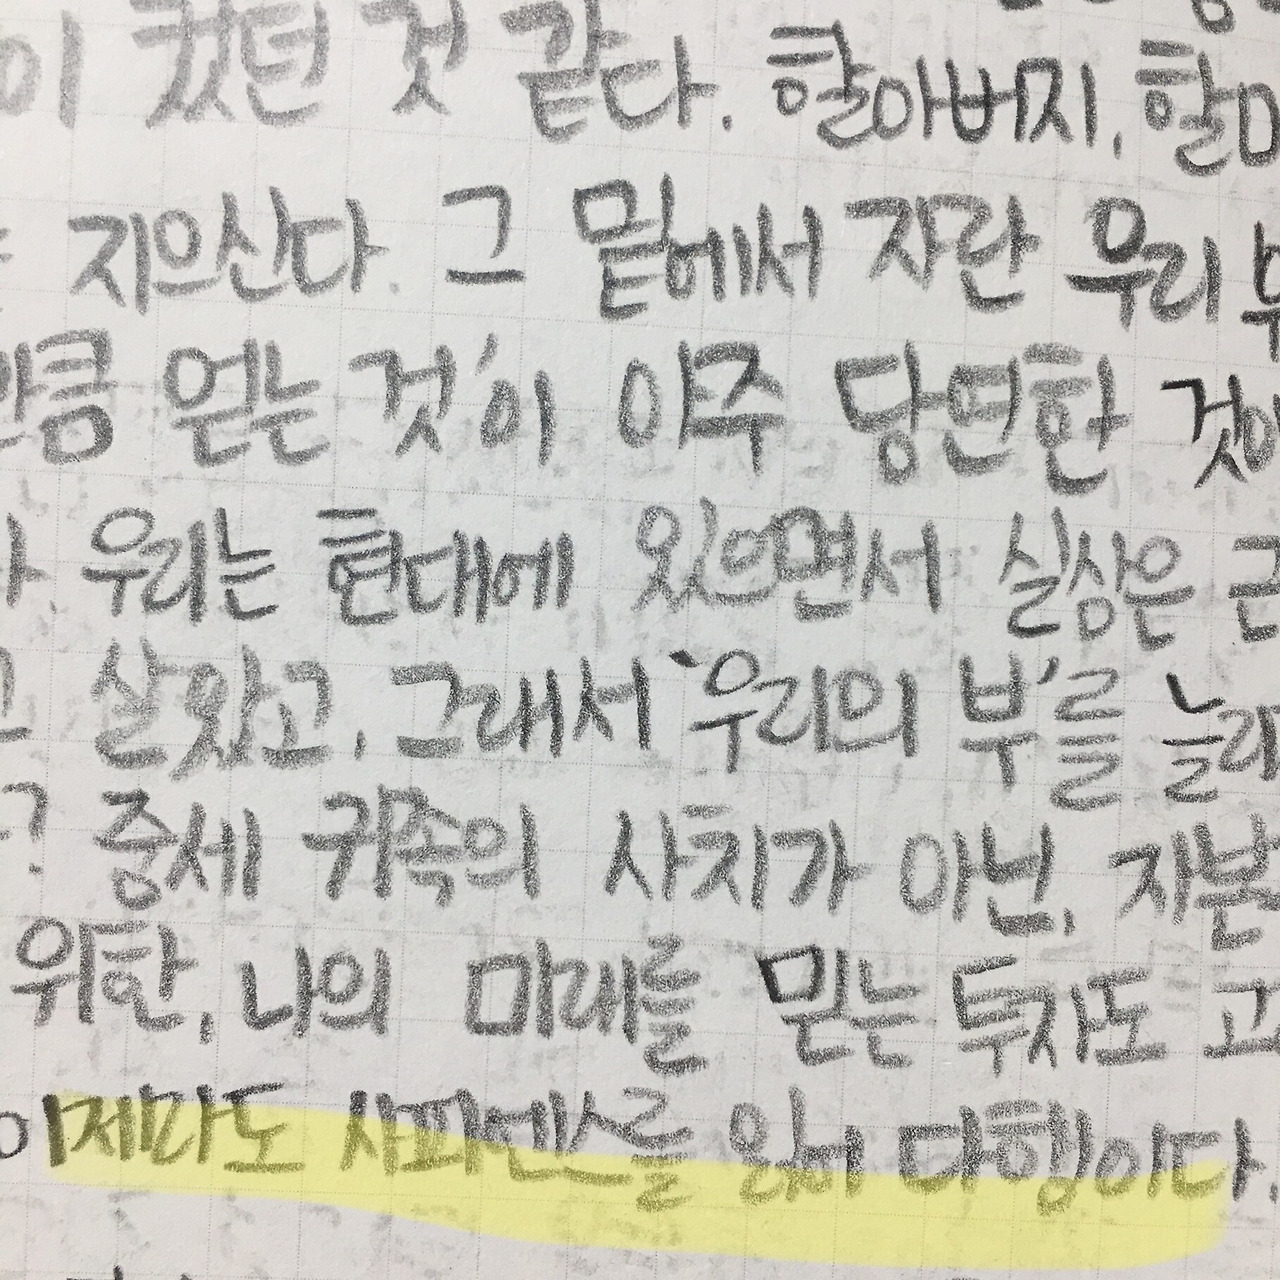 이 컸던 것 같다. 할아버지, 할머
지으신다. 그 밑에서 자란 우리 부
만큼 얻는 것'이 아주 당연한 것이
우리는 현대에 있으면서 실상은 근
고 살았고, 그래서 '우리의 부'를 늘려
? 중세 귀족의 사치가 아닌, 자본
위한, 나의 미래를 믿는 투자도 고
이제라도 사피엔스를 읽어 다행이다.